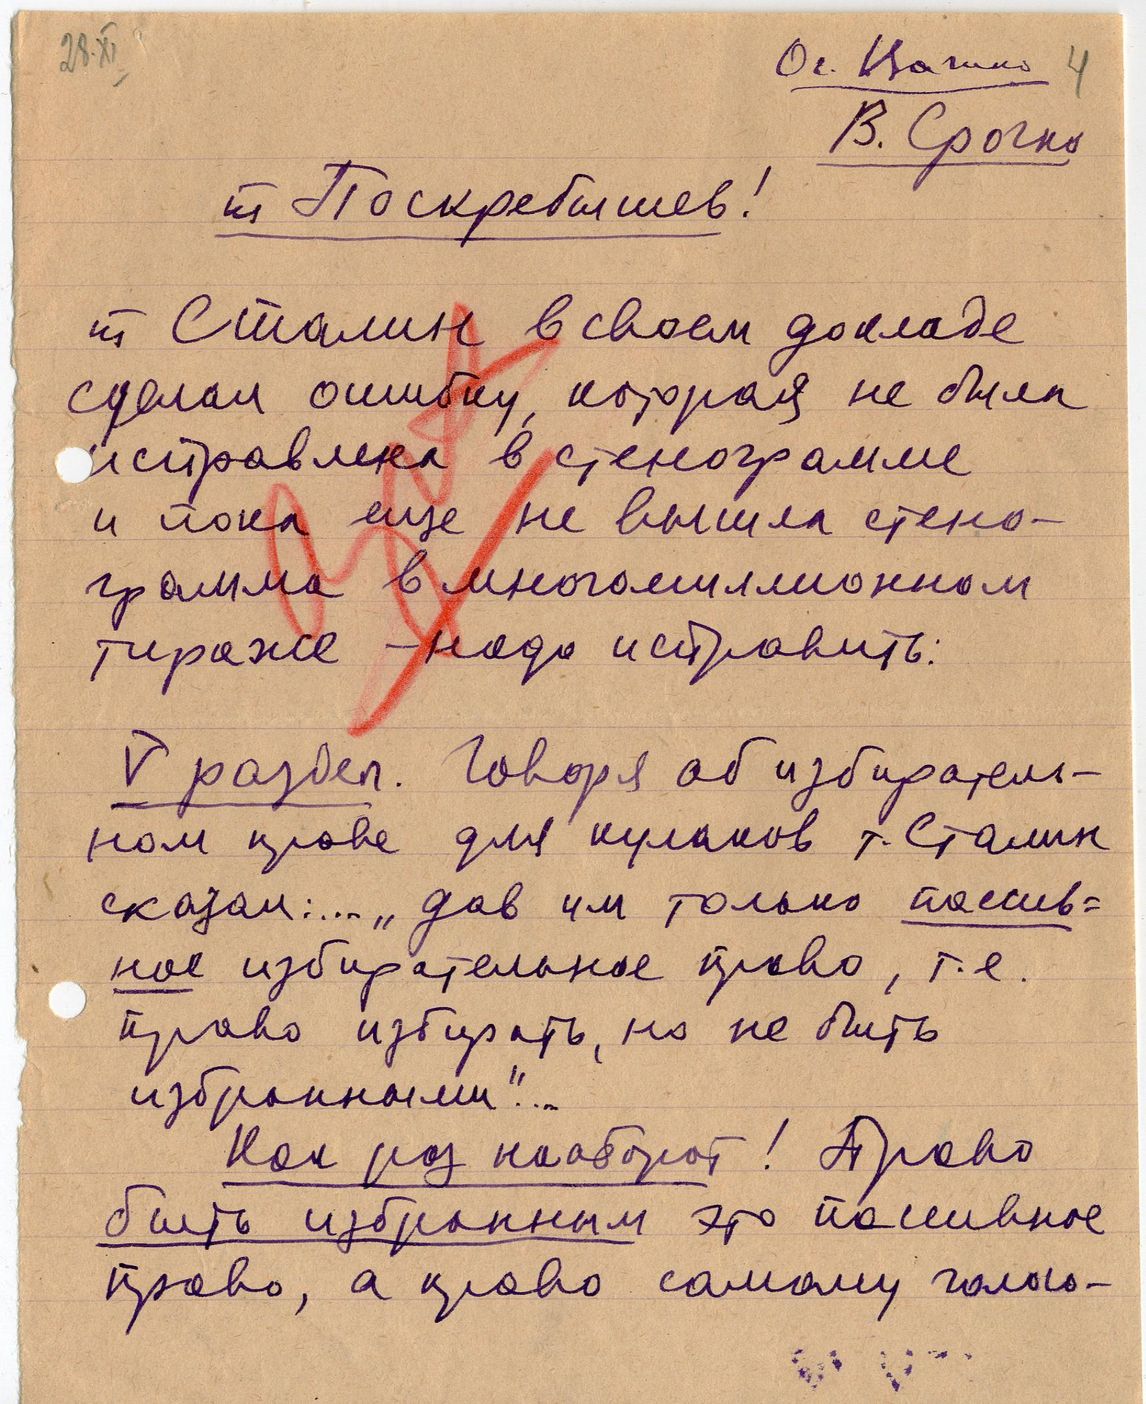 28.XI
Ос. Важно 4
В. Срочно
т Поскребышев!
т Сталин в своем докладе
сделал ошибку, которая не была
исправлена в стенограмме
и пока еще не вышла стено-
грамма в многомиллионном
тираже - надо исправить:
V раздел. Говоря об избиратель-
ном праве для кулаков т. Сталин
сказал:... „дав им только пассив=
ное избирательное право, т.е.
право избирать, но не быть
избранными"...
Как раз наоборот! Право
быть избранным это пассивное
право, а право самому голосо-